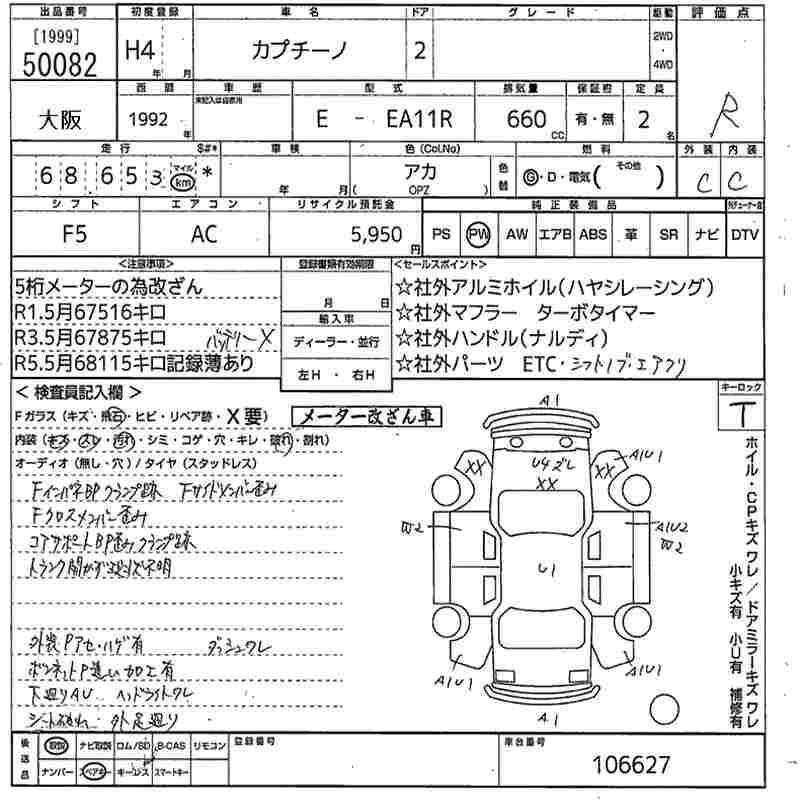 出品番号 初度登録 車名 ドア グレード 駆動 評価点
[1999]
50082 H4 年 月 カプチーノ 2 2WD ・ 4WD R
西暦 車歴 型式 排気量 保証書 定員
未記入は自家用
大阪 1992 年 E - EA11R 660 CC 有・無 2 名
走行 $#* 車検 色(Col.No) 燃料 外装 内装
68,653 マイル km * 年 月 アカ ( OPZ ) 色替 G・D・電気( その他 ) C C
シフト エアコン リサイクル預託金 純正装備品
F5 AC 5,950 円 PS PW AW エアB ABS 革 SR ナビ DTV
<注意事項> 登録書類有効期限 <セールスポイント>
5桁メーターの為改ざん ☆社外アルミホイル(ハヤシレーシング)
R1.5月67516キロ 月 日 ☆社外マフラー ターボタイマー
R3.5月67875キロ バッテリーX 輸入車 ☆社外ハンドル(ナルディ)
R5.5月68115キロ記録簿あり ディーラー・並行 ☆社外パーツ ETC・シフトノブ・エアクリ
左H ・ 右H
<検査員記入欄> キーロック
Fガラス(キズ・飛石・ヒビ・リペア跡・X要) メーター改ざん車 T
内装(キズ・スレ・汚れ・シミ・コゲ・穴・キレ・破れ・割れ)
オーディオ(無し・穴)/タイヤ(スタッドレス)
FインパネBPクランプ跡 Fサイドメンバー歪み
Fクロスメンバー歪み
コアサポートBP歪みクランプ跡
トランク開かず
不明
外装Pアセ・ハゲ有 ダッシュワレ
ボンネットP違い加工有
下廻りAU ヘッドライトワレ
シート破れ 外足廻り
A1
U4ズレ
XX
XX
XX
A1U1
A1U1
W2
A1U2
W2
U1
A1U1
A1U1
A1
ホイル・CPキズワレ/ドアミラーキズワレ
小キズ有 小U有 補修有
後送品 取説 ナビ取説 ロム/SD B-CAS リモコン 登録番号 車台番号
ナンバー スペアキー キーレス スマートキー 106627